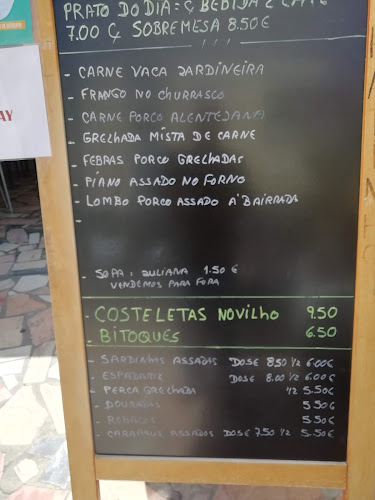 PRATO DO DIA = Ç BEBIDA E CAFÉ
7.00 Ç SOBREMESA 8.50€
- CARNE VACA JARDINEIRA
- FRANGO NO CHURRASCO
- CARNE PORCO ALENTEJANA
- GRELHADA MISTA DE CARNE
- FEBRAS PORCO GRELHADAS
- PIANO ASSADO NO FORNO
- LOMBO PORCO ASSADO A' BAIRRADA
-
- SOPA : JULIANA 1.50 €
VENDEMOS PARA FORA
- COSTELETAS NOVILHO 9.50
- BITOQUES 6.50
- SARDINHAS ASSADAS DOSE 8.50 1/2 6.00€
- ESPADARTE DOSE 8.00 1/2 6.00€
- PERCA GRELHADA 1/2 5.50€
- DOURADAS 5.50€
- ROBALOS 5.50€
- CARAPAUS ASSADOS DOSE 7.50 1/2 5.50€
AY